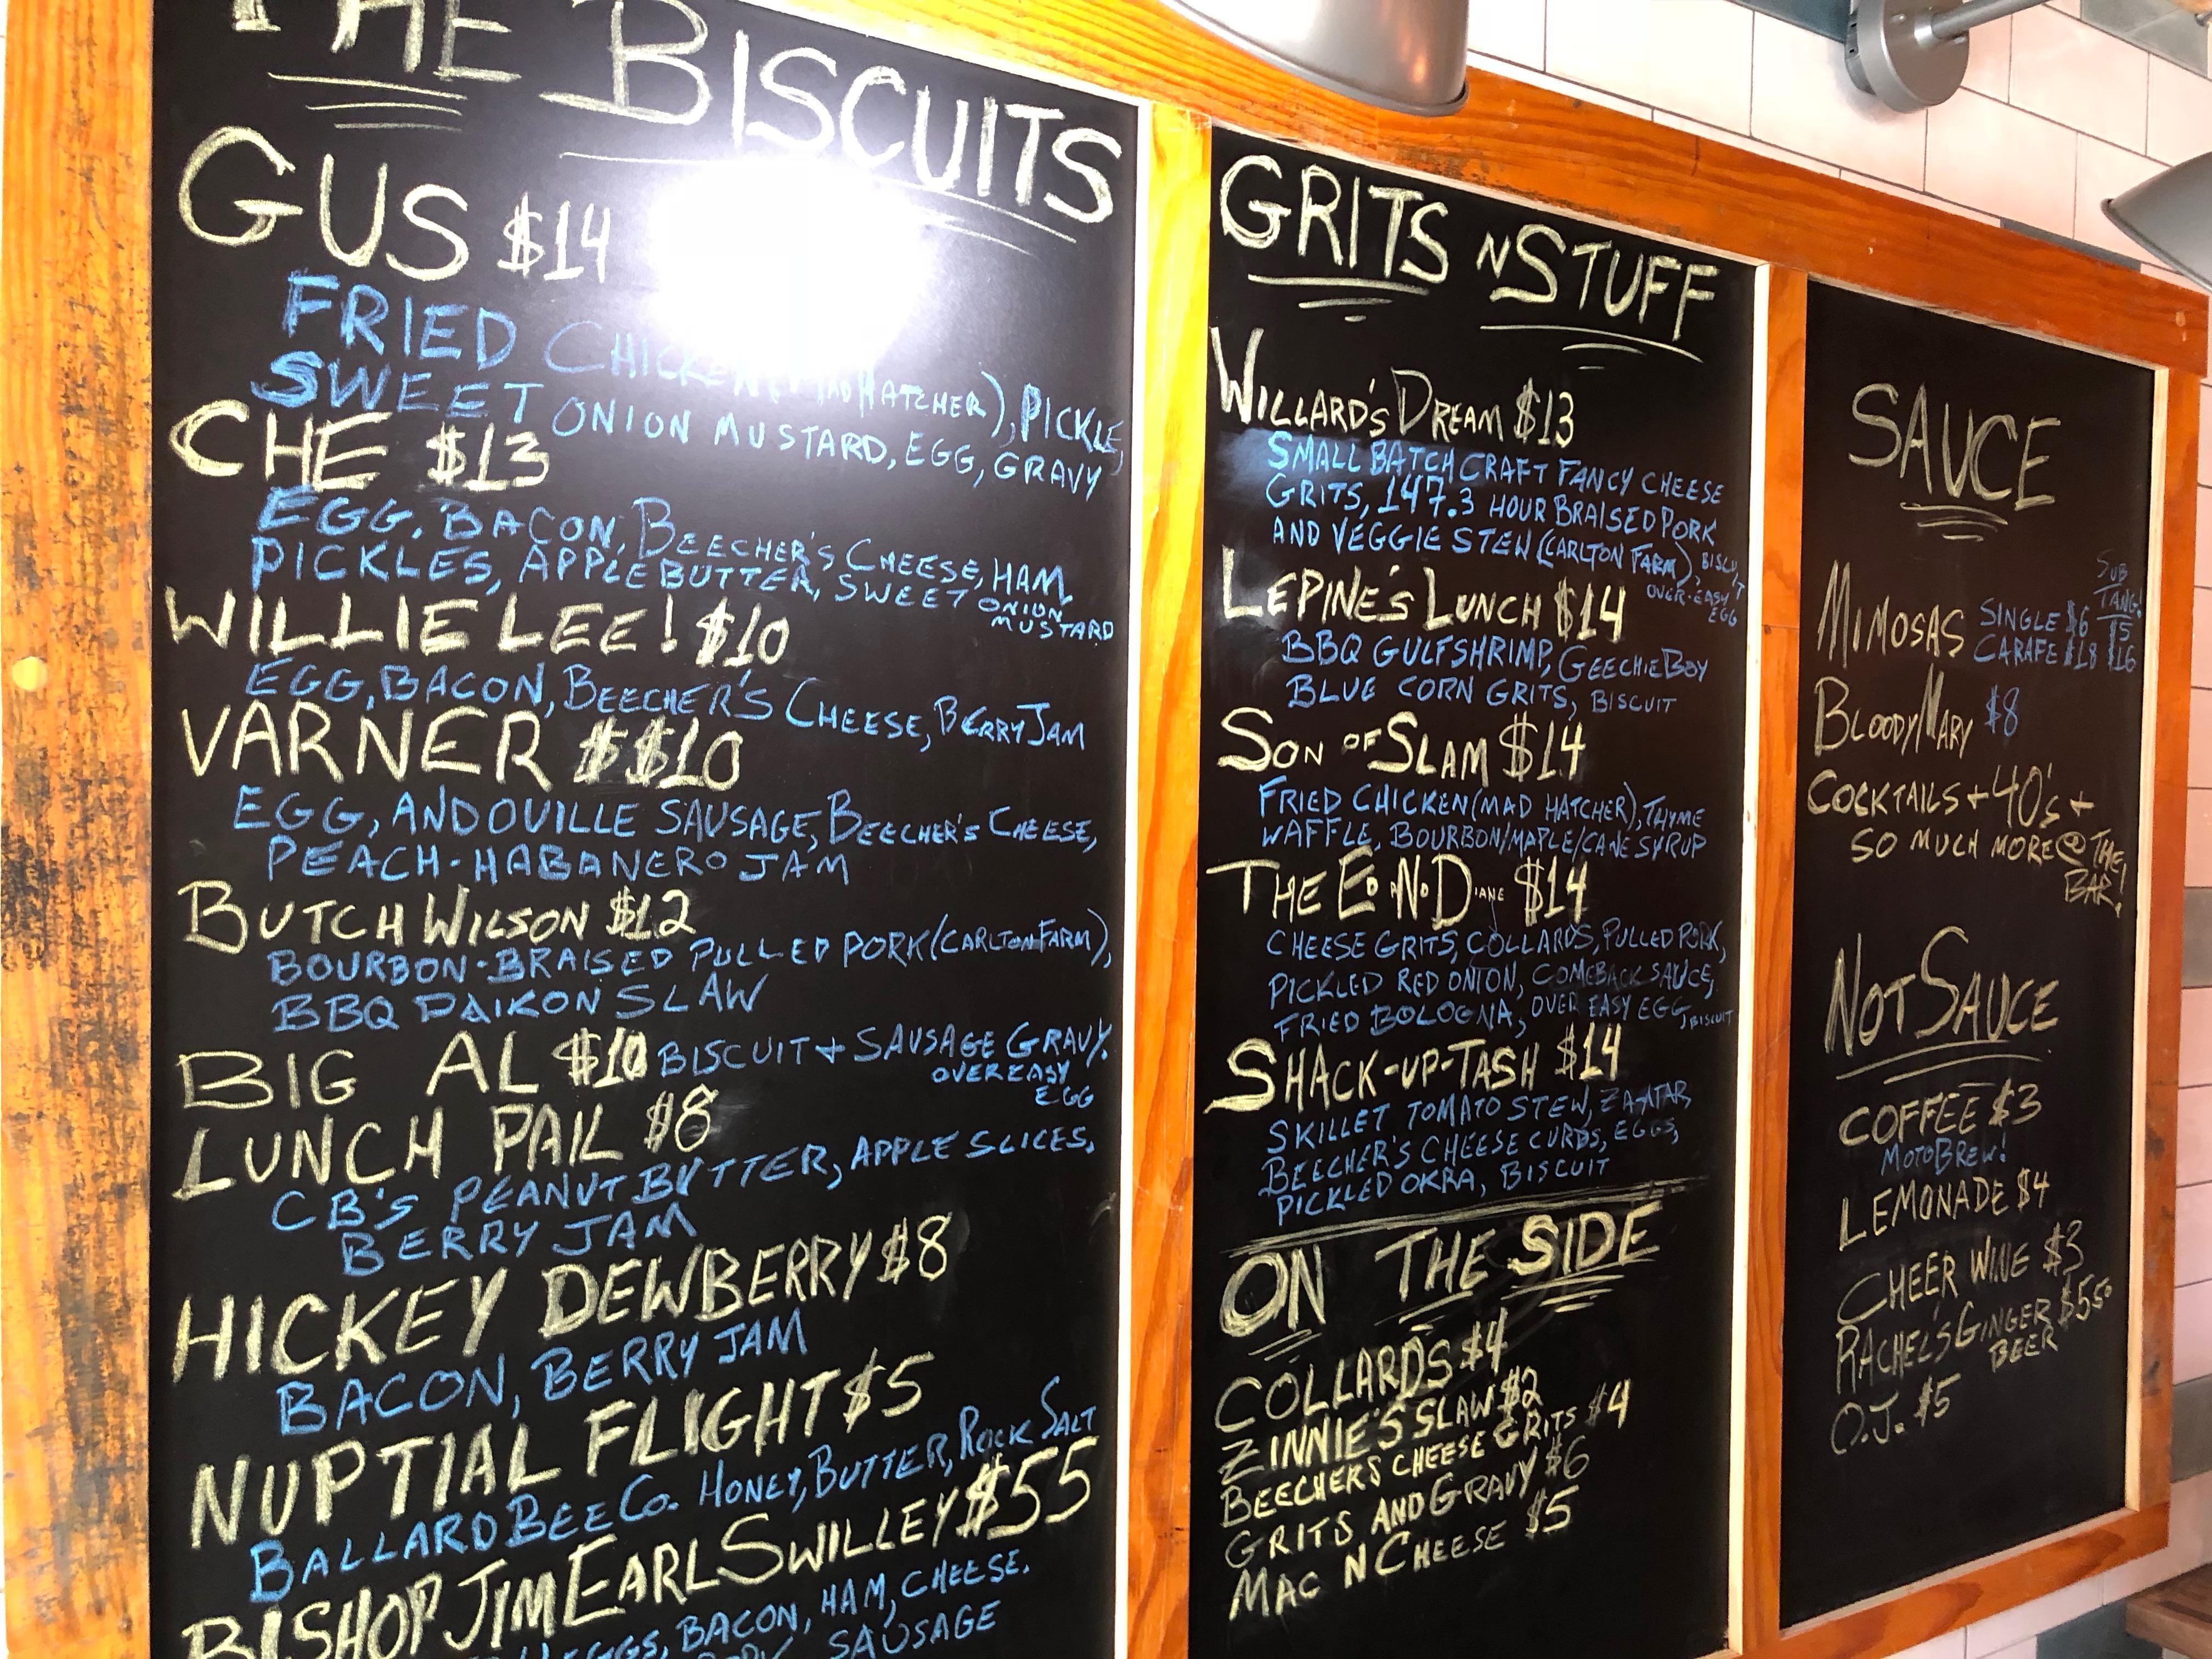 THE BISCUITS
GUS $14
FRIED CHICKEN (MAD HATCHER), PICKLE,
SWEET ONION MUSTARD, EGG, GRAVY
CHE $13
EGG, BACON, BEECHER'S CHEESE, HAM,
PICKLES, APPLE BUTTER, SWEET ONION
MUSTARD
WILLIE LEE! $10
EGG, BACON, BEECHER'S CHEESE, BERRY JAM
VARNER $$10
EGG, ANDOUILLE SAUSAGE, BEECHER'S CHEESE,
PEACH-HABANERO JAM
BUTCH WILSON $12
BOURBON-BRAISED PULLED PORK (CARLTON FARM),
BBQ DAIKON SLAW
BIG AL $10 BISCUIT + SAUSAGE GRAVY.
OVER EASY
EGG
LUNCH PAIL $8
CB'S PEANUT BUTTER, APPLE SLICES,
BERRY JAM
HICKEY DEWBERRY $8
BACON, BERRY JAM
NUPTIAL FLIGHT $5
BALLARD BEE CO. HONEY, BUTTER, ROCK SALT
BISHOP JIM EARL SWILLEY $55
EGGS, BACON, HAM, CHEESE.
SAUSAGE
GRITS N STUFF
WILLARD'S DREAM $13
SMALL BATCH CRAFT FANCY CHEESE
GRITS, 147.3 HOUR BRAISED PORK
AND VEGGIE STEW (CARLTON FARM), BISCUIT
OVER-EASY
EGG
LEPINE'S LUNCH $14
BBQ GULF SHRIMP, GEECHIE BOY
BLUE CORN GRITS, BISCUIT
SON OF SLAM $14
FRIED CHICKEN (MAD HATCHER), THYME
WAFFLE, BOURBON/MAPLE/CANE SYRUP
THE E.N.DIANE $14
CHEESE GRITS, COLLARDS, PULLED PORK,
PICKLED RED ONION, COMEBACK SAUCE,
FRIED BOLOGNA, OVER EASY EGG, BISCUIT
SHACK-UP-TASH $14
SKILLET TOMATO STEW, ZA'ATAR,
BEECHER'S CHEESE CURDS, EGGS,
PICKLED OKRA, BISCUIT
ON THE SIDE
COLLARDS $4
ZINNIE'S SLAW $2
BEECHERS CHEESE GRITS $4
GRITS AND GRAVY $6
MAC N CHEESE $5
SAUCE
SUB
TANG!
MIMOSAS SINGLE $6 $5
CARAFE $18 $16
BLOODY MARY $8
COCKTAILS + 40'S +
SO MUCH MORE @ THE
BAR!
NOT SAUCE
COFFEE $3
MOTOBREW!
LEMONADE $4
CHEER WINE $3
RACHEL'S GINGER $5.50
BEER
O.J. $5